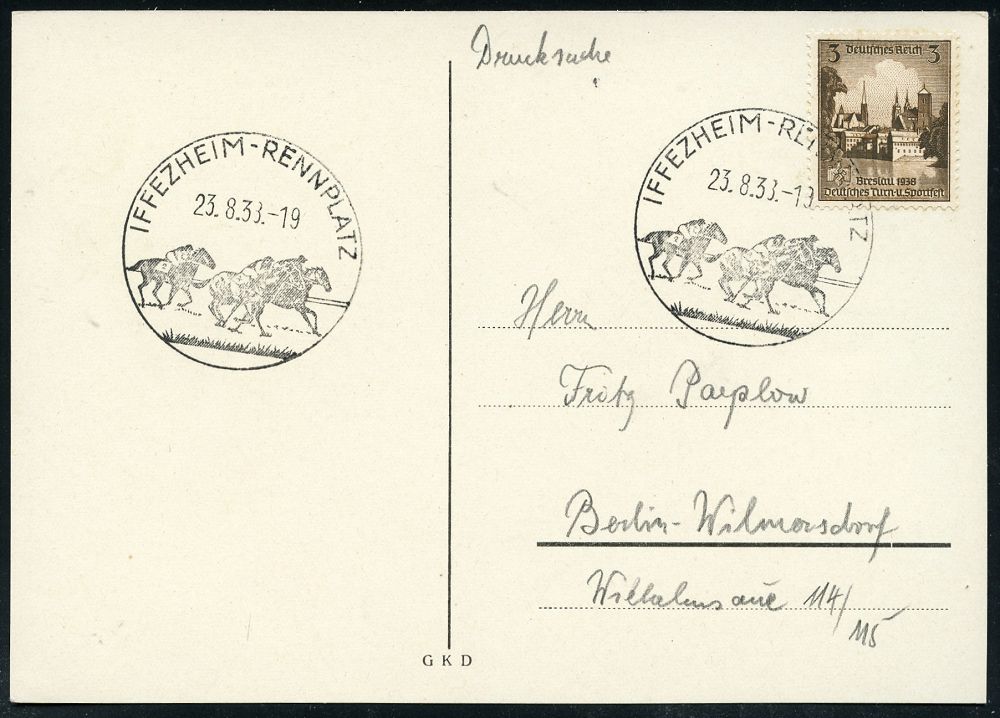 Drucksache
3 Deutsches Reich 3
Breslau 1938
Deutsches Turn-u. Sportfest
IFFEZHEIM-RENNPLATZ
23.8.38.-19
IFFEZHEIM-RE TZ
23.8.38.-19
Herrn
Fritz Paeplow
Berlin-Wilmersdorf
Wilhelmsaue 114/
115
G K D